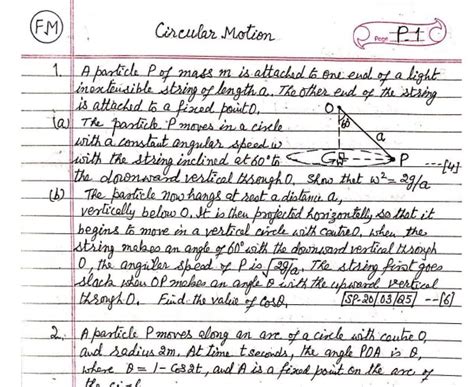 FM
Circular Motion
Page P-1
1. A particle P of mass m is attached to one end of a light
inextensible string of length a. The other end of the string
is attached to a fixed point O.
O
60
a
P
(a) The particle P moves in a circle
with a constant angular speed ω
with the string inclined at 60° to ---[4]
the downward vertical through O. Show that ω² = 2g/a
(b) The particle now hangs at rest a distance a,
vertically below O. It is then projected horizontally so that it
begins to move in a vertical circle with centre O. when the
string makes an angle of 60° with the downward vertical through
O, the angular speed of P is √2g/a. The string first goes
slack when OP makes an angle θ with the upward vertical
through O. Find the value of Cosθ. [SP-20/03/Q5] --[6]
2. A particle P moves along an arc of a circle with centre O,
and radius 2m. At time t seconds, the angle POA is θ,
where θ = 1 - Cos2t, and A is a fixed point on the arc of
the